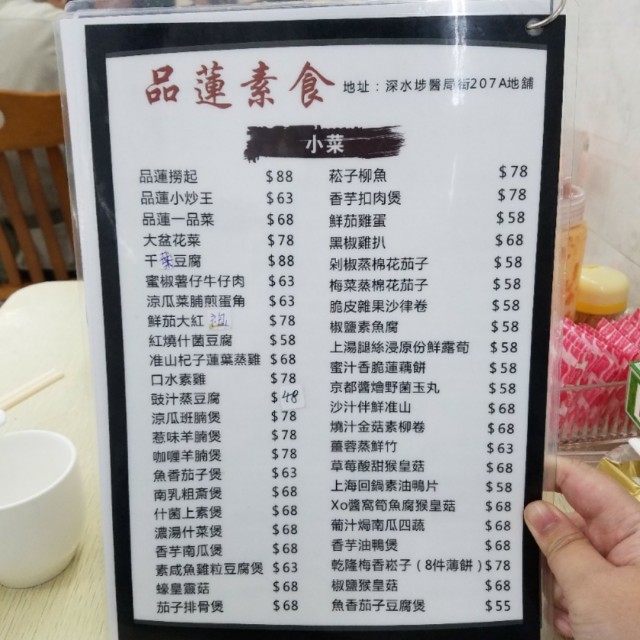 品蓮素食 地址：深水埗醫局街207A地舖
小菜
品蓮撈起 $88
品蓮小炒王 $63
品蓮一品菜 $68
大盆花菜 $78
干菜豆腐 $88
蜜椒薯仔牛仔肉 $63
涼瓜菜脯煎蛋角 $63
鮮茄大紅 $78
紅燒什菌豆腐 $58
准山杞子蓮葉蒸雞 $68
口水素雞 $78
豉汁蒸豆腐 $48
涼瓜班腩煲 $78
惹味羊腩煲 $78
咖喱羊腩煲 $78
魚香茄子煲 $63
南乳粗斎煲 $68
什菌上素煲 $68
濃湯什菜煲 $68
香芋南瓜煲 $68
素咸魚雞粒豆腐煲 $63
蠔皇靈菇 $68
茄子排骨煲 $68
菘子柳魚 $78
香芋扣肉煲 $78
鮮茄雞蛋 $58
黑椒雞扒 $68
剁椒蒸棉花茄子 $58
梅菜蒸棉花茄子 $58
脆皮雜果沙律卷 $58
椒鹽素魚腐 $58
上湯腿絲浸原份鮮露荀 $58
蜜汁香脆蓮藕餅 $58
京都醬燴野菌玉丸 $58
沙汁伴鮮准山 $68
燒汁金菇素柳卷 $68
薑蓉蒸鮮竹 $63
草莓酸甜猴皇菇 $68
上海回鍋素油鴨片 $58
Xo醬窩筍魚腐猴皇菇 $68
葡汁焗南瓜四蔬 $68
香芋油鴨煲 $68
乾隆梅香崧子（8件薄餅）$78
椒鹽猴皇菇 $68
魚香茄子豆腐煲 $55